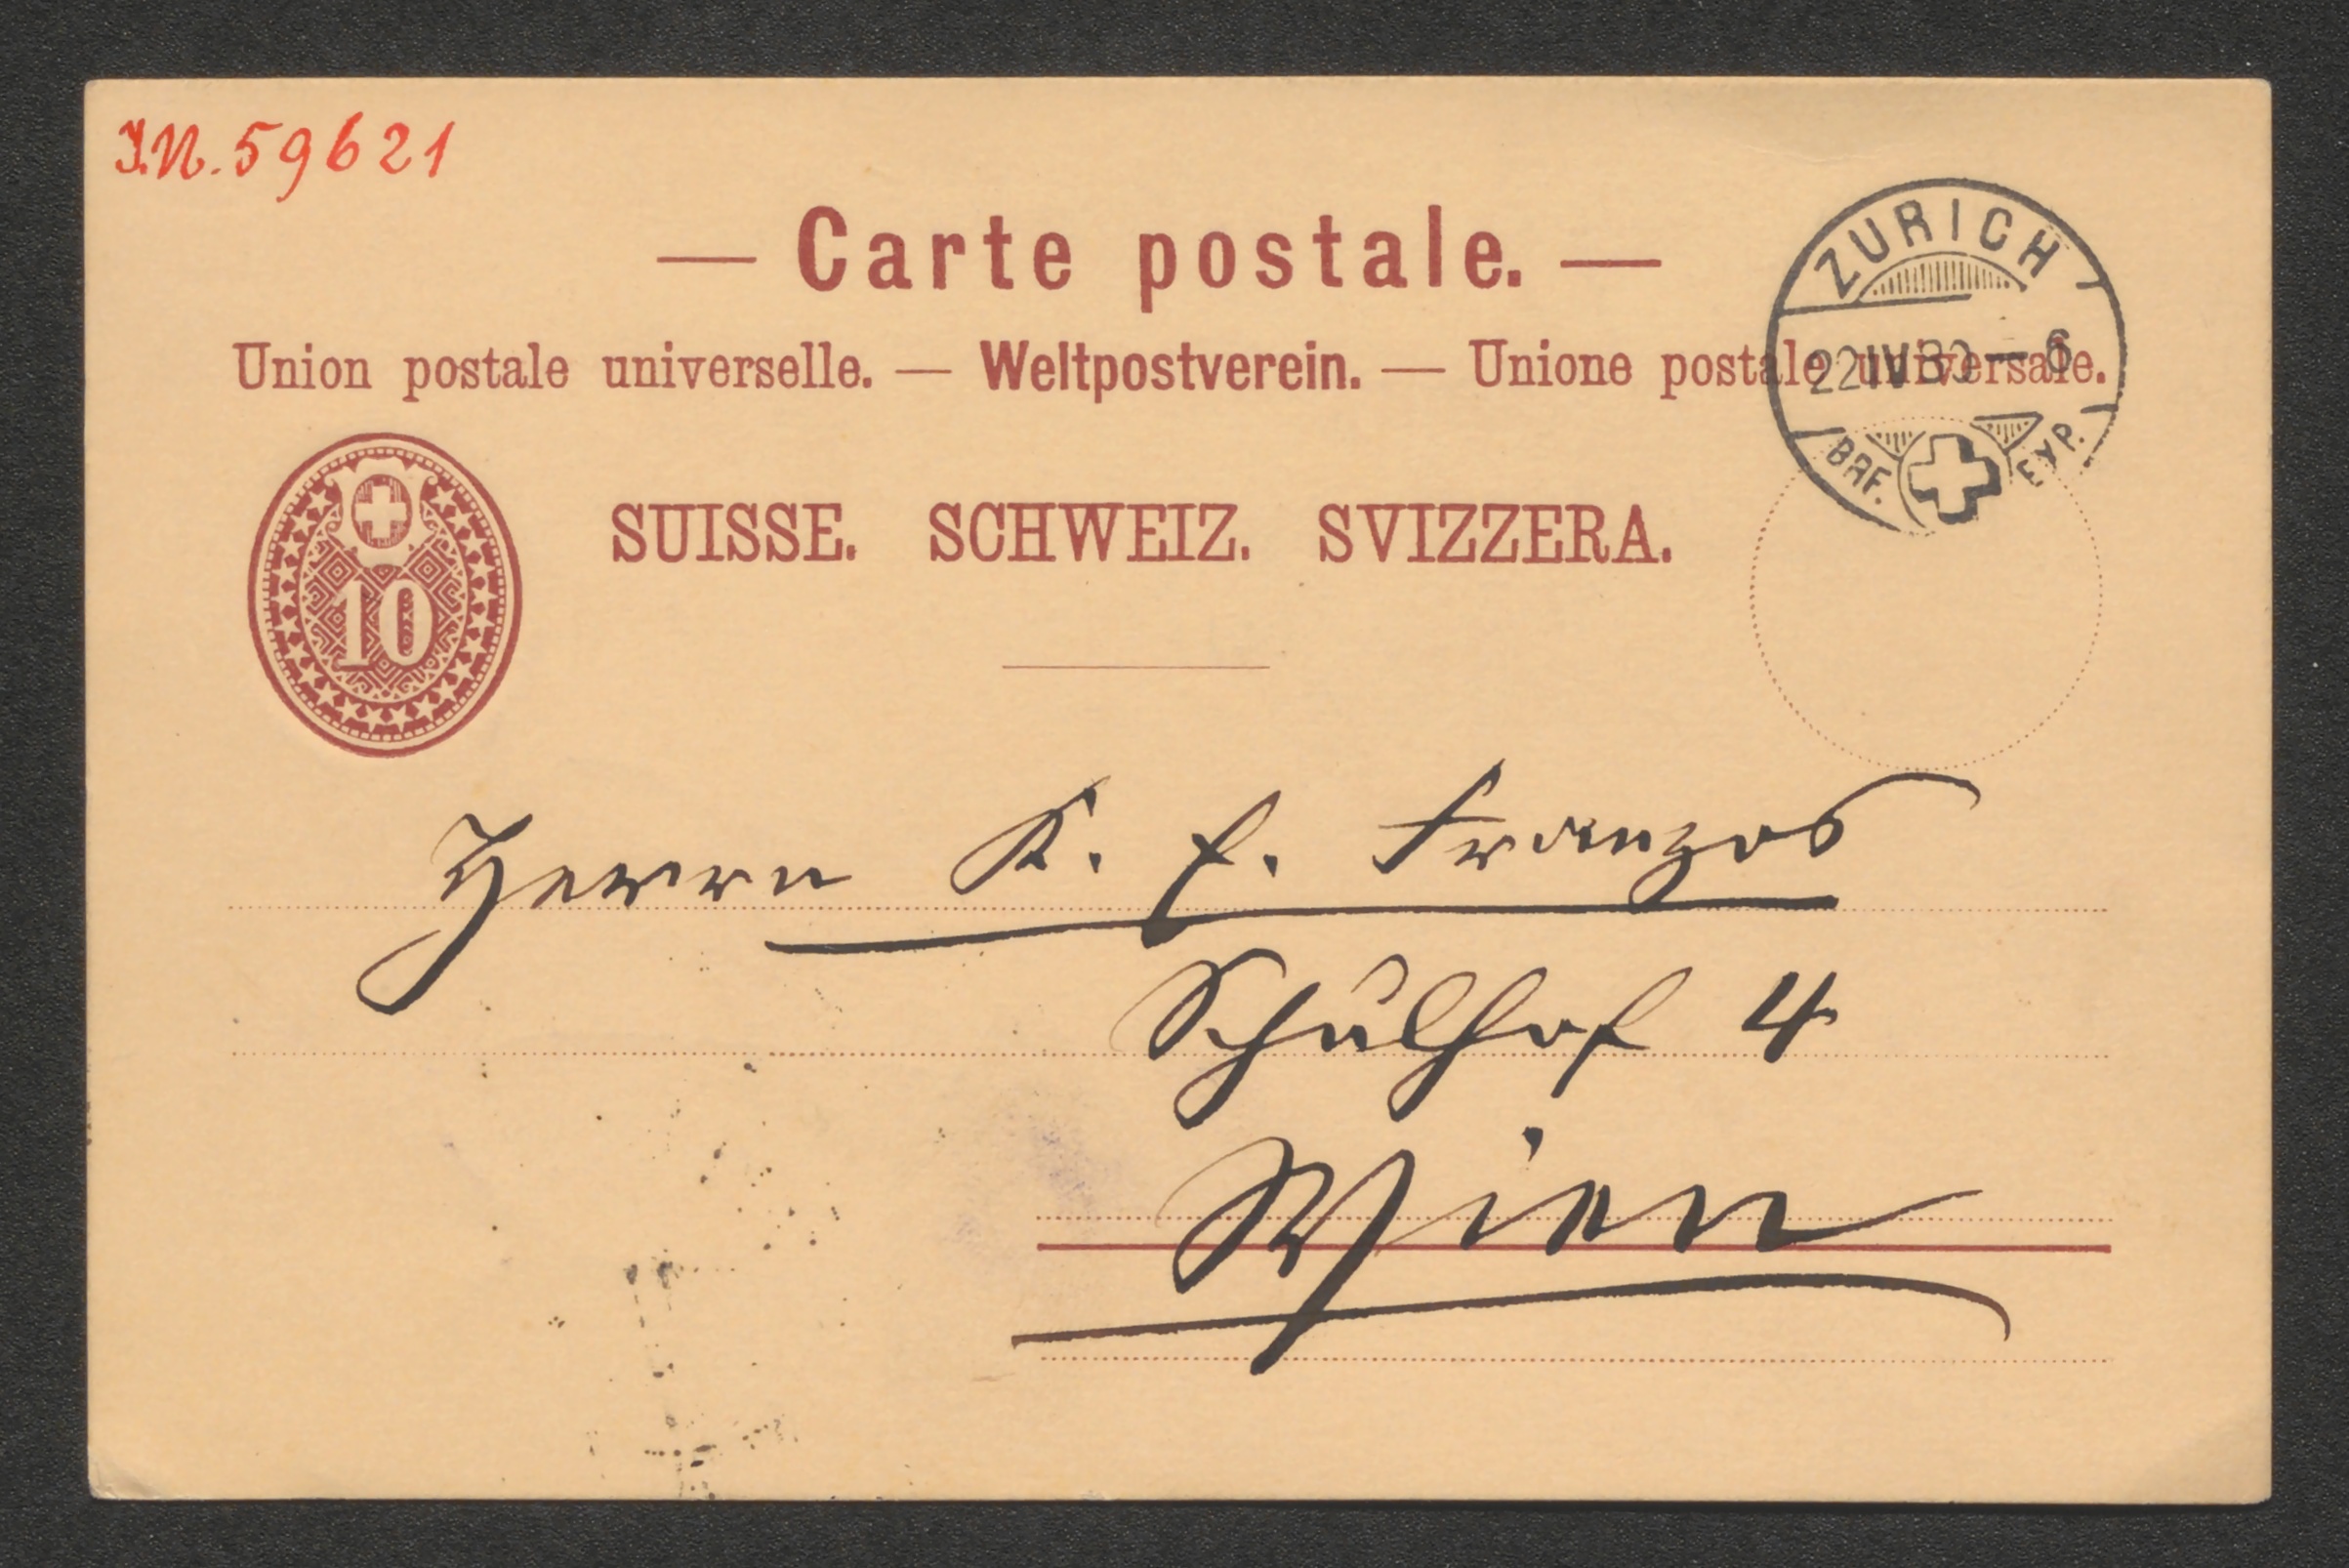 I.N. 59621
— Carte postale. —
ZURICH
Union postale universelle. — Weltpostverein. — Unione postale universale.
22 IV 80 – 6
BRF. EXP.
SUISSE. SCHWEIZ. SVIZZERA.
10
Herrn K. E. Franzos
Schulhof 4
Wien